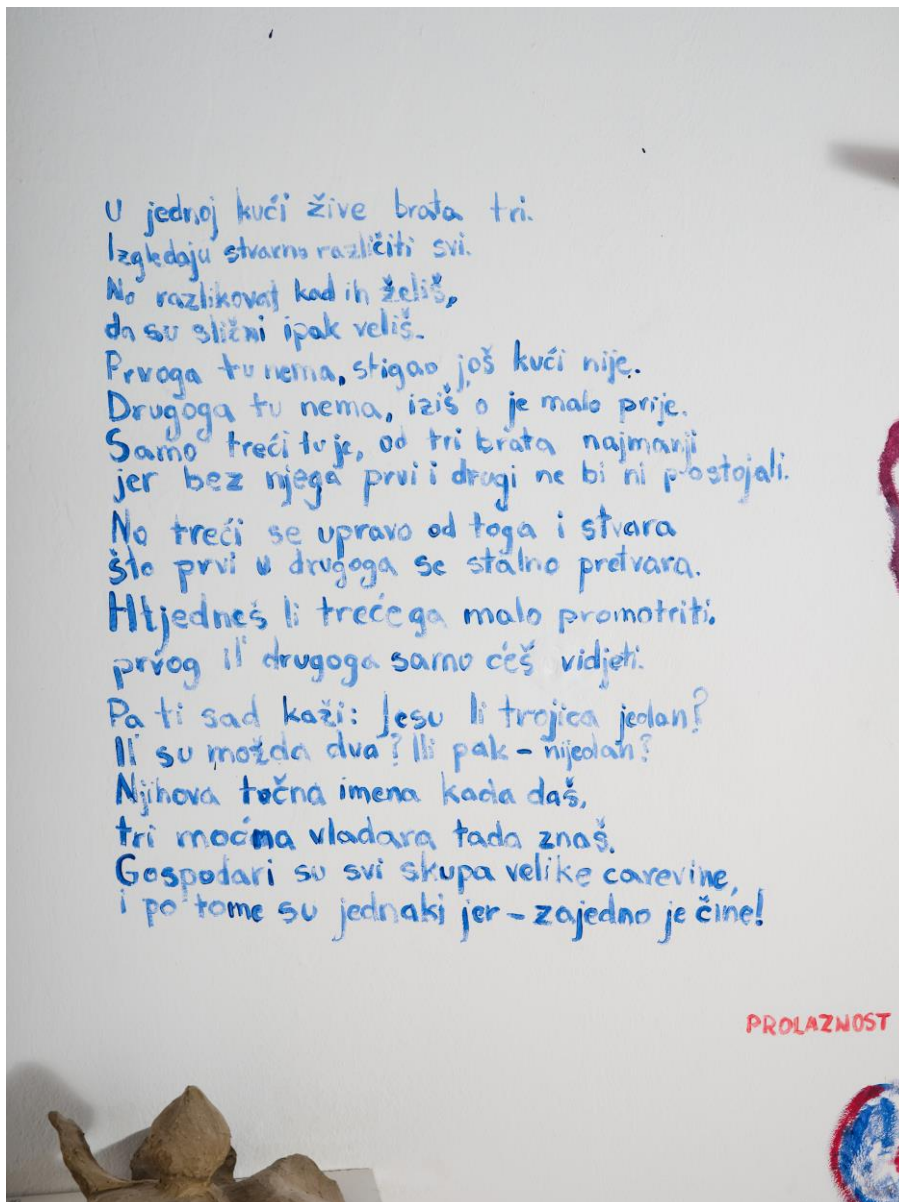 U jednoj kući žive brata tri.
Izgledaju stvarno različiti svi.
No razlikovat kad ih želiš,
da su slični ipak veliš.
Prvoga tu nema, stigao još kući nije.
Drugoga tu nema, iziš o je malo prije.
Samo treći tu je, od tri brata najmanji
jer bez njega prvi i drugi ne bi ni postojali.
No treći se upravo od toga i stvara
što prvi u drugoga se stalno pretvara.
Htjedneš li trećega malo promotriti.
prvog il' drugoga samo ćeš vidjeti.
Pa ti sad kaži: Jesu li trojica jedan?
Il' su možda dva? Ili pak - nijedan?
Njihova točna imena kada daš,
tri moćna vladara tada znaš.
Gospodari su svi skupa velike carevine,
i po tome su jednaki jer - zajedno je čine!
PROLAZNOST